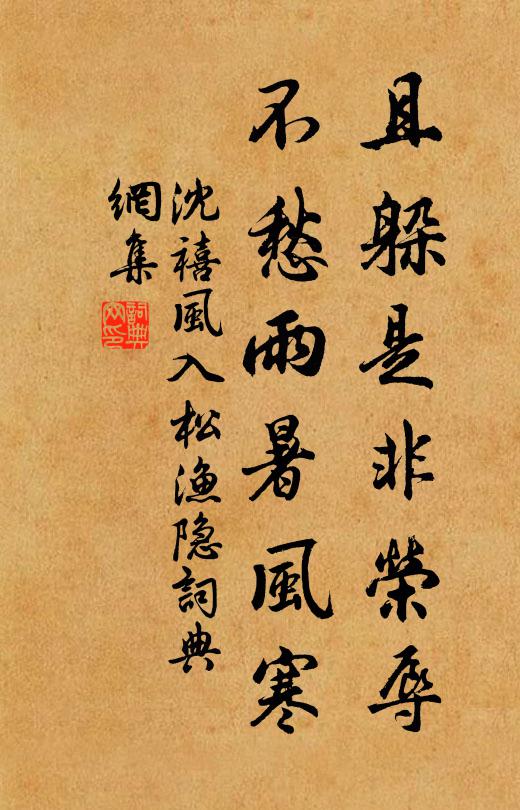 且躲是非榮辱
不愁雨暑風寒
沈禧風入松漁隐詞典
網集
詞典